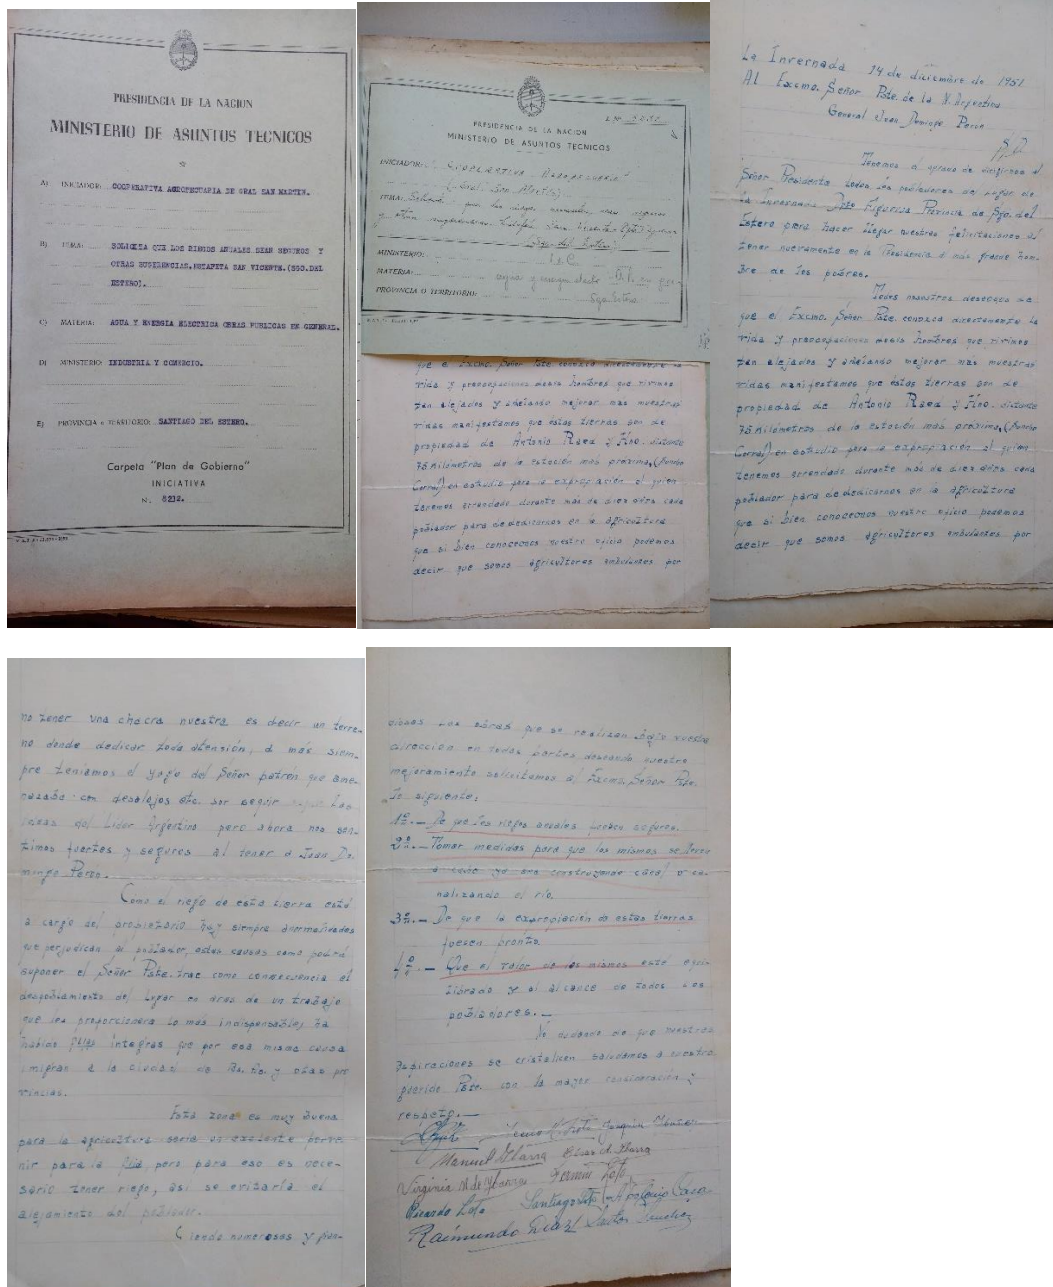 PRESIDENCIA DE LA NACION
MINISTERIO DE ASUNTOS TECNICOS
A) INICIADOR: COOPERATIVA AGROPECUARIA DE GRAL SAN MARTIN.
B) TEMA: SOLICITA QUE LOS RIEGOS ANUALES SEAN SEGUROS Y
OTRAS SUGERENCIAS. ESTAFETA SAN VICENTE. (SGO. DEL
ESTERO).
C) MATERIA: AGUA Y ENERGIA ELECTRICA OBRAS PUBLICAS EN GENERAL.
D) MINISTERIO: INDUSTRIA Y COMERCIO.
E) PROVINCIA o TERRITORIO: SANTIAGO DEL ESTERO.
Carpeta "Plan de Gobierno"
INICIATIVA
N. 8232.
PRESIDENCIA DE LA NACION
MINISTERIO DE ASUNTOS TECNICOS
INICIADOR: Cooperativa Agropecuaria
(Gral. San Martín)
TEMA: Solicita que los riegos anuales sean seguros
y otras sugerencias. Estafeta San Vicente
Sgo. del Estero
MINISTERIO: I. y C.
MATERIA: agua y energia
PROVINCIA O TERRITORIO: Sgo. Estero
que el Excmo. Señor Pste. conozca directamente la
vida y preocupaciones hombres que vivimos
tan alejados y anelando mejorar más nuestras
vidas manifestamos que éstas tierras son de
propiedad de Antonio Raed y Hno. distante
75 Kilómetros de la estación más próxima,
en estudio para la expropiación al quien
tenemos arrendado durante más de diez años cada
poblador para dedicarnos en la agricultura
que si bien conocemos nuestro oficio podemos
decir que somos agricultores ambulantes por
La Invernada 14 de diciembre de 1951
Al Excmo. Señor Pste. de la N. Argentina
General Juan Domingo Perón
S/D
Tenemos el agrado de dirigirnos al
Señor Presidente todos los pobladores del lugar de
la Invernada Dpto Figueroa Provincia de Sgo. del
Estero para hacer llegar nuestras felicitaciones al
tener nuevamente en la Presidencia al más grande hom-
bre de los pobres.
Todos nosotros deseosos de
que el Excmo. Señor Pste. conozca directamente la
vida y preocupaciones hombres que vivimos
tan alejados y anelando mejorar más nuestras
vidas manifestamos que éstas tierras son de
propiedad de Antonio Raed y Hno. distante
75 Kilómetros de la estación más próxima,
en estudio para la expropiación al quien
tenemos arrendado durante más de diez años cada
poblador para dedicarnos en la agricultura
que si bien conocemos nuestro oficio podemos
decir que somos agricultores ambulantes por
no tener una chacra nuestra es decir un terre-
no donde dedicar toda atensión, a más siem-
pre teníamos el yugo del Señor patrón que ame-
nazaba con desalojos etc. por seguir las
ideas del Líder Argentino pero ahora nos sen-
timos fuertes y seguros al tener a Juan Do-
mingo Perón.
Como el riego de esta tierra está
a cargo del propietario hay siempre anormalidades
que perjudican al poblador, estas causas como podrá
suponer el Señor Pste. trae como consecuencia el
despoblamiento del lugar en aras de un trabajo
que les proporcionera lo más indispensable, ha
habido flias integras que por esa misma causa
imigran a la ciudad de Bs. As. y otras pro
vincias.
Esta zona es muy buena
para la agricultura sería un exelente porve-
nir para la flia, pero para eso es nece-
sario tener riego, así se evitaría el
alejamiento del poblador.
Ciendo numerosas y gran-
diosas las obras que se realizan bajo vuestra
dirección en todas partes, deseando nuestro
mejoramiento solicitamos al Excmo. Señor Pste.
lo siguiente:
1º.— De que los riegos anuales fuesen seguros.
2º.— Tomar medidas para que los mismos se lleven
a cabo ya sea construyendo canal o ca-
nalizando el río.
3º.— De que la expropiación de estas tierras
fuesen pronto.
4º.— Que el valor de los mismos esté equi-
librado y al alcance de todos los
pobladores.—
No dudando de que nuestras
aspiraciones se cristalicen saludamos a nuestro
querido Pste. con la mayor consideración y
respeto.—
Joaquín
Manuel Ibarra Elias A. Ibarra
Virginia M. de Fermín Loto
Ricardo Loto Santiago Loto
Raimundo Díaz Santos Sanchez